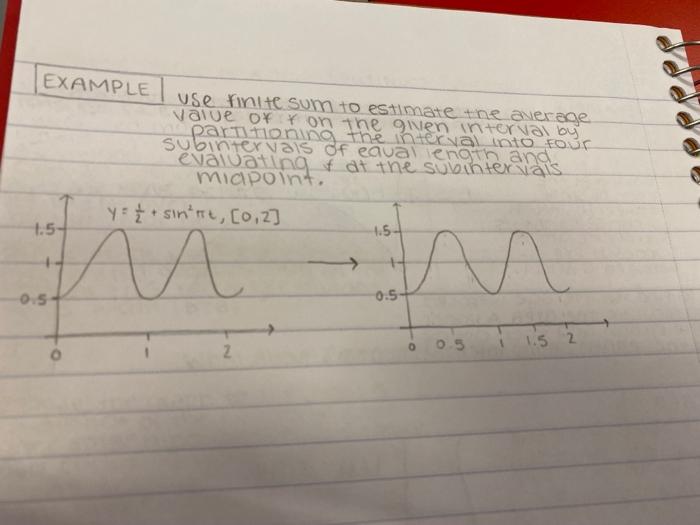 EXAMPLE
use finite sum to estimate the average
value of f on the given interval by
partitioning the interval into four
subintervals of equal length and
evaluating f at the subintervals
midpoint.
y = ½ + sin²πt, [0,2]
1.5
1
0.5
0 1 2
1.5
1
0.5
0 0.5 1 1.5 2